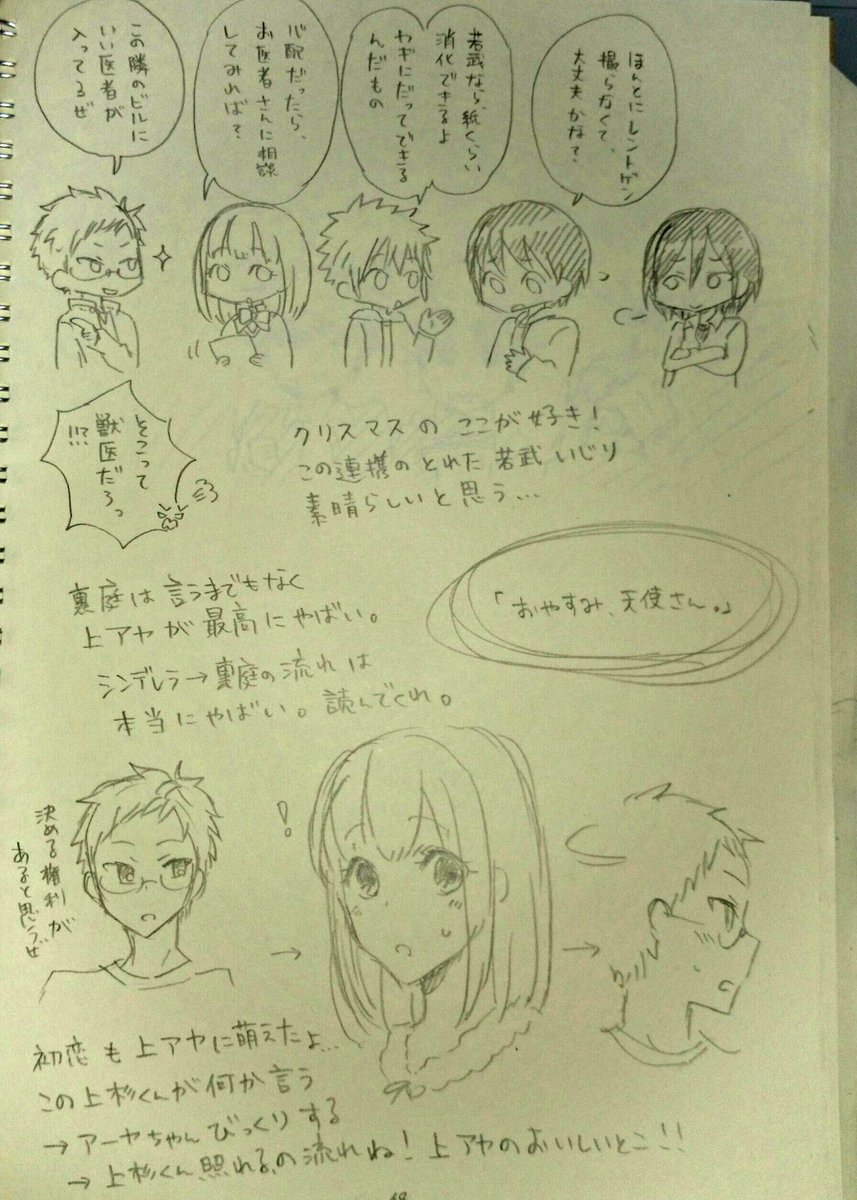 ほんとにレントゲン
撮らなくて、
大丈夫かな？
若武なら、紙くらい
消化できるよ
ヤギにだってできる
んだもの
心配だったら、
お医者さんに相談
してみれば？
この隣のビルに
いい医者が
入ってるぜ
そこって
獣医だろっ
!!?
クリスマスのここが好き！
この連携のとれた若武いじり
素晴らしいと思う…
裏庭は言うまでもなく
上アヤが最高にやばい。
シンデレラ→裏庭の流れは
本当にやばい。読んでくれ。
「おやすみ、天使さん。」
決める権利が
あると思うぜ
!
→
→
初恋も上アヤに萌えたよ…
この上杉くんが何か言う
→アーヤちゃんびっくりする
→上杉くん、照れる、の流れね！上アヤのおいしいとこ!!